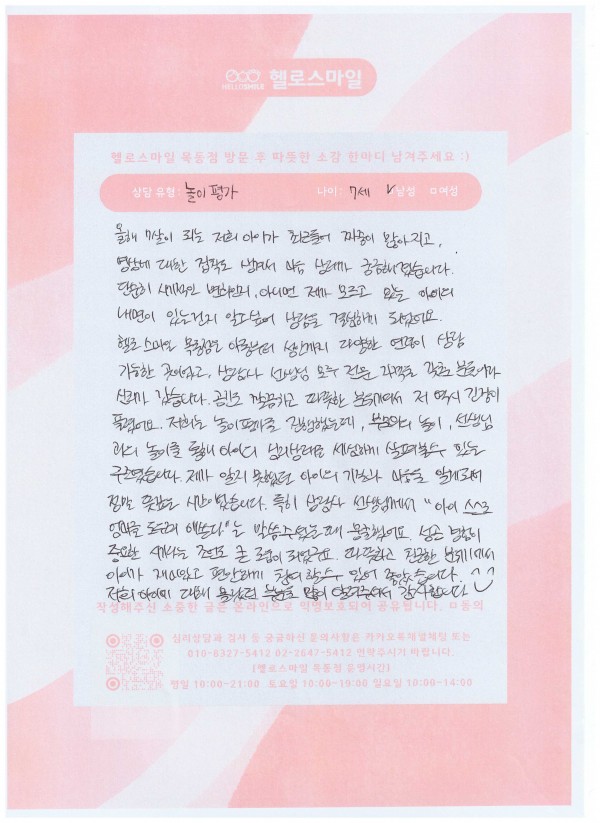 HELLOSMILE 헬로스마일
헬로스마일 목동점 방문 후 따뜻한 소감 한마디 남겨주세요 :)
상담 유형: 놀이평가 나이: 7세 ✓남성 □여성
올해 7살이 되는 저희 아이가 최근들어 짜증이 많아지고,
영상에 대한 집착도 생겨서 마음 상태가 궁금해졌습니다.
단순히 시기적인 변화인지, 아니면 제가 모르고 있는 아이의
내면이 있는건지 알고싶어 상담을 결정하게 되었어요.
헬로스마일 목동점은 아동부터 성인까지 다양한 연령이 상담
가능한 곳이었고, 상담사 선생님 모두 전문 자격을 갖춘 분들이라
신뢰가 갔습니다. 공간도 깔끔하고 따뜻한 분위기여서 저 역시 긴장이
풀렸어요. 저희는 놀이평가로 진행했는데, 부모와의 놀이, 선생님
과의 놀이를 통해 아이의 심리상태를 세심하게 살펴볼수 있는
구조였습니다. 제가 알지 못했던 아이의 기질과 마음을 알게되어
정말 뜻깊은 시간이었습니다. 특히 상담사 선생님께서 "아이 스스로
엄마를 도우려 애쓴다"는 말씀주셨을때 뭉클했어요. 양육 방법이
중요한 시기는 조언도 큰 도움이 되었구요. 따뜻하고 친근한 분위기에서
아이가 재미있고 편안하게 참여할수 있어 좋았습니다.
저희 아이에 대해 몰랐던 부분을 많이 알려주셔서 감사합니다 ^^
작성해주신 소중한 글은 온라인으로 익명보호되어 공유됩니다. □동의
심리상담과 검사 등 궁금하신 문의사항은 카카오톡채널채팅 또는
010-8327-5412 02-2647-5412 연락주시기 바랍니다.
[헬로스마일 목동점 운영시간]
평일 10:00-21:00 토요일 10:00-19:00 일요일 10:00-14:00